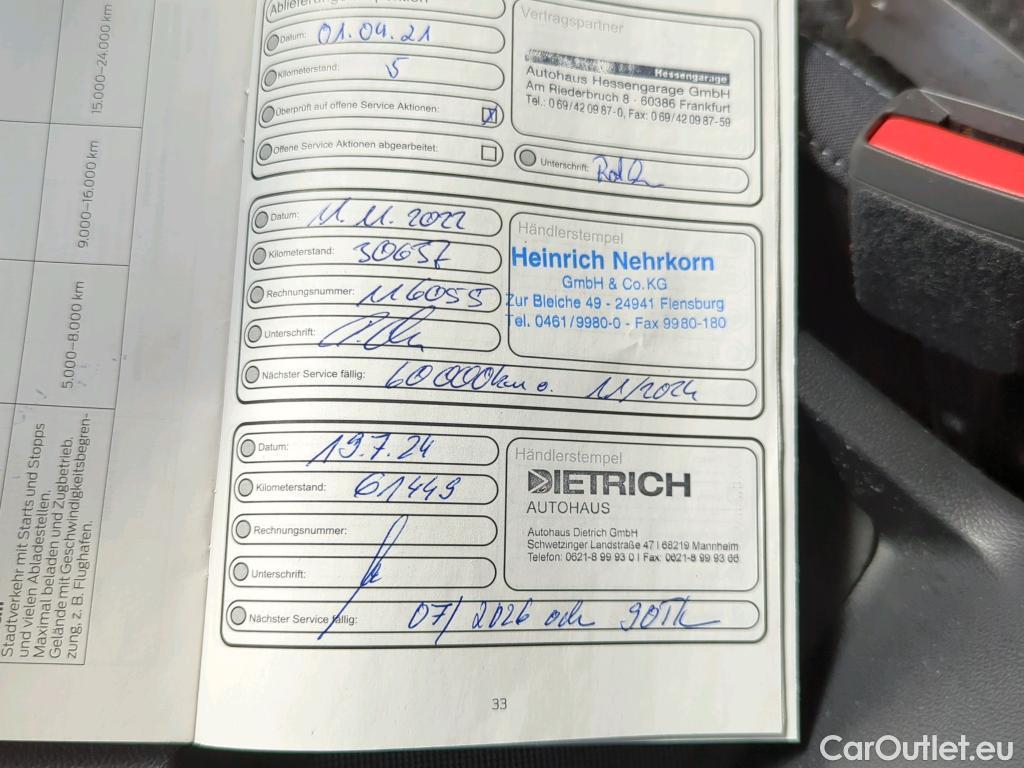 15.000–24.000 km
9.000–16.000 km
5.000–8.000 km
Stadtverkehr mit Starts und Stopps
und vielen Abladestellen.
Maximal beladen und Zugbetrieb.
Gelände mit Geschwindigkeitsbegren-
zung, z. B. Flughafen.
Datum: 01.04.21
Kilometerstand: 5
Überprüft auf offene Service Aktionen: X
Offene Service Aktionen abgearbeitet:
Vertragspartner
Hessengarage
Autohaus Hessengarage GmbH
Am Riederbruch 8 · 60386 Frankfurt
Tel.: 0 69/42 09 87-0, Fax: 0 69/42 09 87-59
Unterschrift:
Datum: 11.11.2022
Kilometerstand: 30637
Rechnungsnummer: 116055
Unterschrift:
Nächster Service fällig: 60 000km o. 11/2024
Händlerstempel
Heinrich Nehrkorn
GmbH & Co.KG
Zur Bleiche 49 - 24941 Flensburg
Tel. 0461/9980-0 - Fax 9980-180
Datum: 19.7.24
Kilometerstand: 61449
Rechnungsnummer:
Unterschrift:
Nächster Service fällig: 07/2026 oder 90Tk
Händlerstempel
DIETRICH
AUTOHAUS
Autohaus Dietrich GmbH
Schwetzinger Landstraße 47 | 68219 Mannheim
Telefon: 0621-8 99 93 0 | Fax: 0621-8 99 93 66
33
CarOutlet.eu